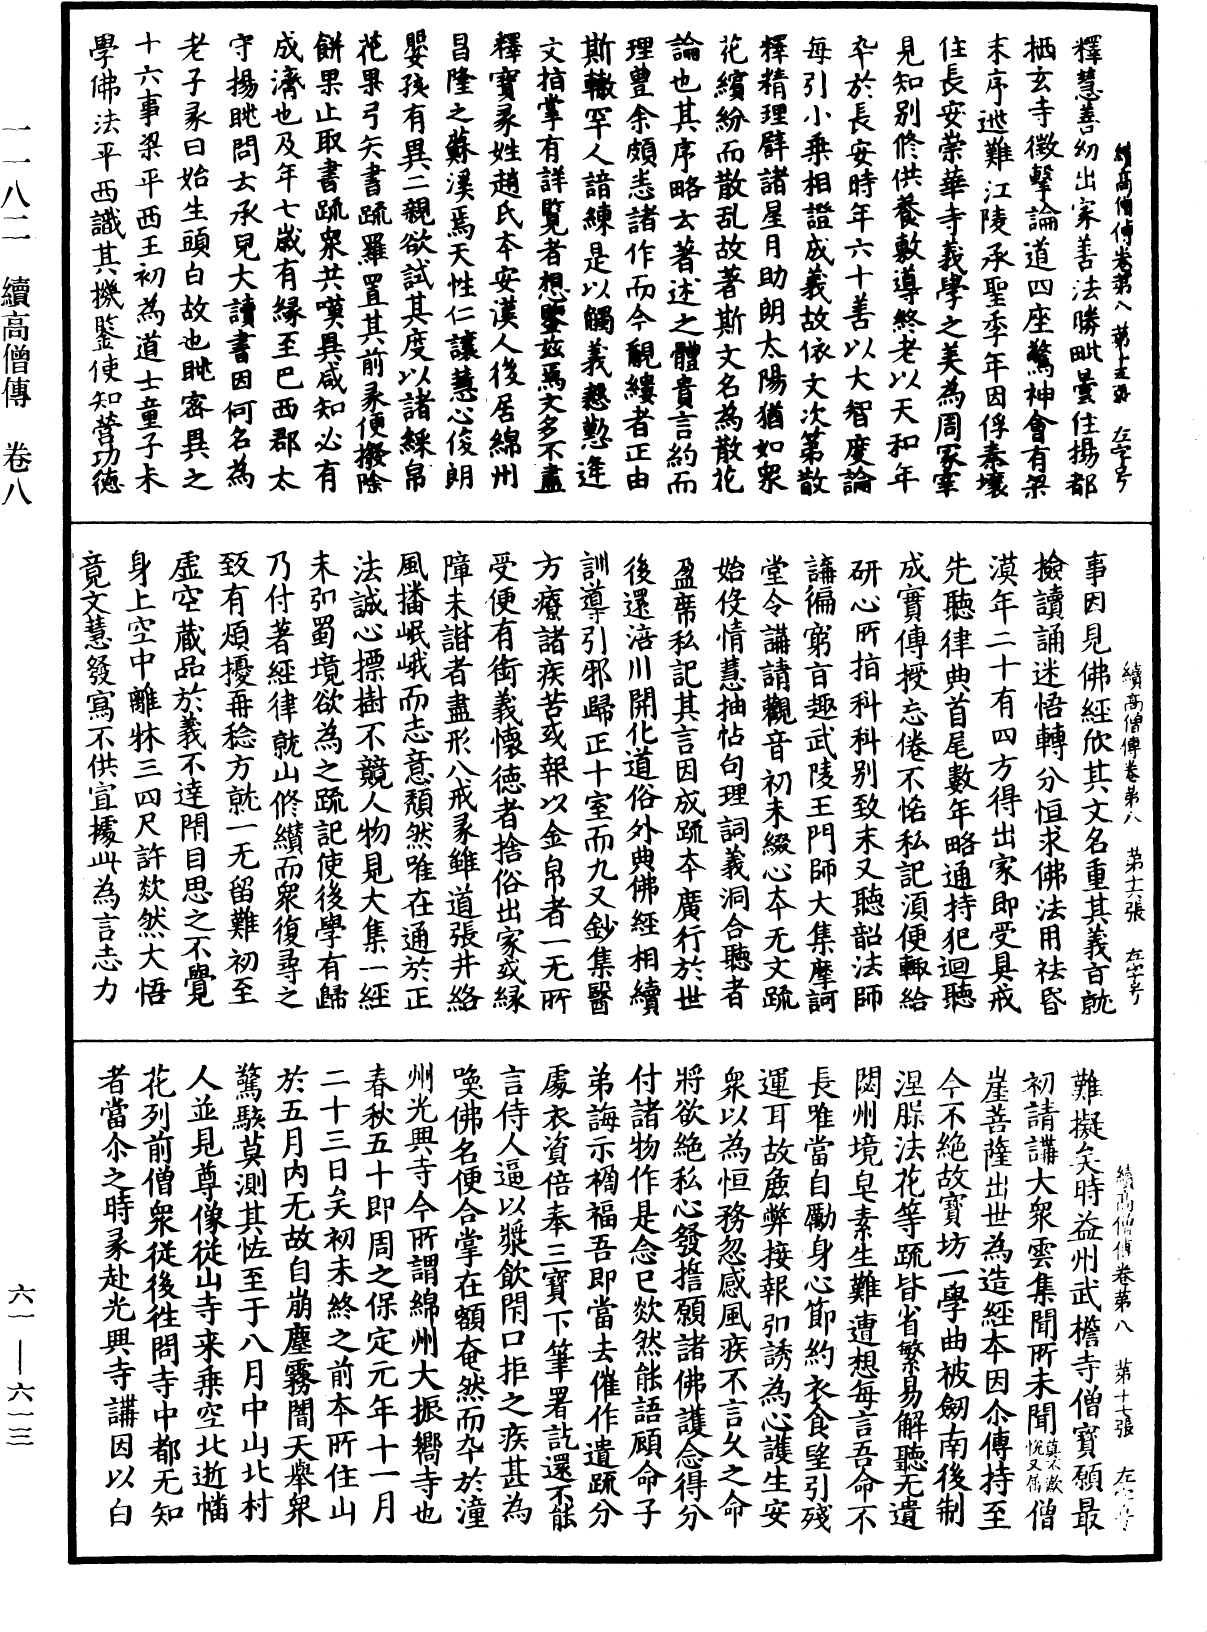 續高僧傳卷第八 第十五張 左字号
釋慧善幼出家善法勝毗曇住揚都
栖玄寺徵擊論道四座驚神會有梁
末序逃難江陵承聖季年因俘秦壤
住長安崇華寺義學之美為周冢宰
見知別修供養敷導終老以天和年
卒於長安時年六十善以大智度論
每引小乘相證成義故依文次第散
釋精理辟諸星月助朗太陽猶如衆
花繽紛而散乱故著斯文名為散花
論也其序略云著述之體貴言約而
理豊余頗悉諸作而今覼縷者正由
斯轍罕人諳練是以觸義懇懃逢
文指掌有詳覽者想鑒茲焉文多不盡
釋寶彖姓趙氏本安漢人後居綿州
昌隆之蘇溪焉天性仁讓慧心俊朗
嬰孩有異二親欲試其度以諸綵帛
花果弓矢書疏羅置其前彖便撥除
餅果止取書疏衆共嘆異咸知必有
成濟也及年七歲有緣至巴西郡太
守揚眺問云承兒大讀書因何名為
老子彖曰始生頭白故也眺密異之
十六事梁平西王初為道士童子未
學佛法平西識其機鑒使知營功德
續高僧傳卷第八 第十六張 左字号
事因見佛經欣其文名重其義旨就
撿讀誦迷悟轉分恒求佛法用祛昏
漠年二十有四方得出家即受具戒
先聽律典首尾數年略通持犯迴聽
成實傳授忘倦不恡私記湏便輙給
研心所指科科別致末又聽韶法師
講徧窮旨趣武陵王門師大集摩訶
堂令講請觀音初未綴心本无文疏
始役情慧抽帖句理詞義洞合聽者
盈席私記其言因成疏本廣行於世
後還涪川開化道俗外典佛經相續
訓導引邪歸正十室而九又鈔集醫
方療諸疾苦或報以金帛者一无所
受便有銜義懷德者捨俗出家或緣
障未諧者盡形八戒彖雖道張井絡
風播岷峨而志意頹然唯在通於正
法誠心摽樹不競人物見大集一經
未弘蜀境欲為之疏記使後學有歸
乃付著經律就山修纘而衆復尋之
致有煩擾再稔方就一无留難初至
虛空藏品於義不達閇目思之不覺
身上空中離牀三四尺許欻然大悟
竟文慧發寫不供宣據此為言志力
續高僧傳卷第八 第十七張 左字号
難擬矣時益州武擔寺僧寶願最
初請講大衆雲集聞所未聞莫不歎悅又屬僧
崖菩薩出世為造經本因尒傳持至
今不絕故寶坊一學曲被劒南後制
涅槃法花等疏皆省繁易解聽无遺
悶州境皂素生難遭想每言吾命不
長唯當自勵身心節約衣食望引殘
運耳故麁弊接報弘誘為心護生安
衆以為恒務忽感風疾不言久之命
將欲絕私心發誓願諸佛護念得分
付諸物作是念已欻然能語顧命子
弟誨示禍福吾即當去催作遺疏分
處衣資倍奉三寶下筆署訖還不能
言侍人逼以漿飲閇口拒之疾甚為
喚佛名便合掌在額奄然而卒於潼
州光興寺今所謂綿州大振嚮寺也
春秋五十即周之保定元年十一月
二十三日矣初未終之前本所住山
於五月内无故自崩塵霧闇天舉衆
驚駭莫測其恠至于八月中山北村
人並見尊像從山寺来乗空北逝幡
花列前僧衆從後徃問寺中都无知
者當尒之時彖赴光興寺講因以白
一一八二 續高僧傳 卷八
六一——六一三